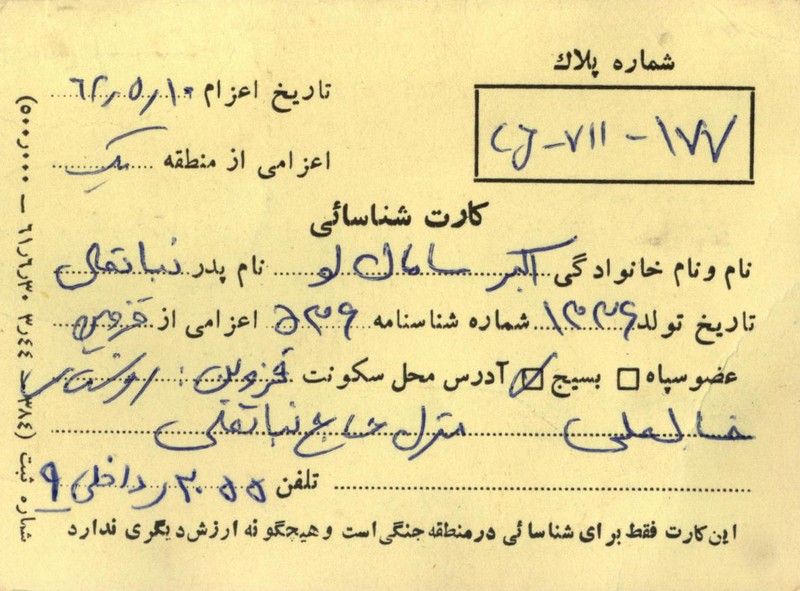 شماره پلاك
تاریخ اعزام ۶۲ر۵ر۱۰
CJ-۷۱۱-۱۷۷
اعزامی از منطقه یک
کارت شناسائی
نام ونام خانوادگی اکبر سامان لو نام پدر نباتعلی
تاریخ تولد ۱۳۳۶ شماره شناسنامه ۵۳۶ اعزامی از قزوین
عضوسپاه □ بسیج ☒ آدرس محل سکونت قزوین: روستای
منزل حاج نباتعلی
تلفن ۳۰۵۵ر داخلی ۹
این کارت فقط برای شناسائی درمنطقه جنگی است وهیچگونه ارزش دیگری ندارد
شماره ثبت (۳۸۴
۳ر۴۴ ۶۱ر۶ر۳۰ — ۵۰۰ر۰۰۰)